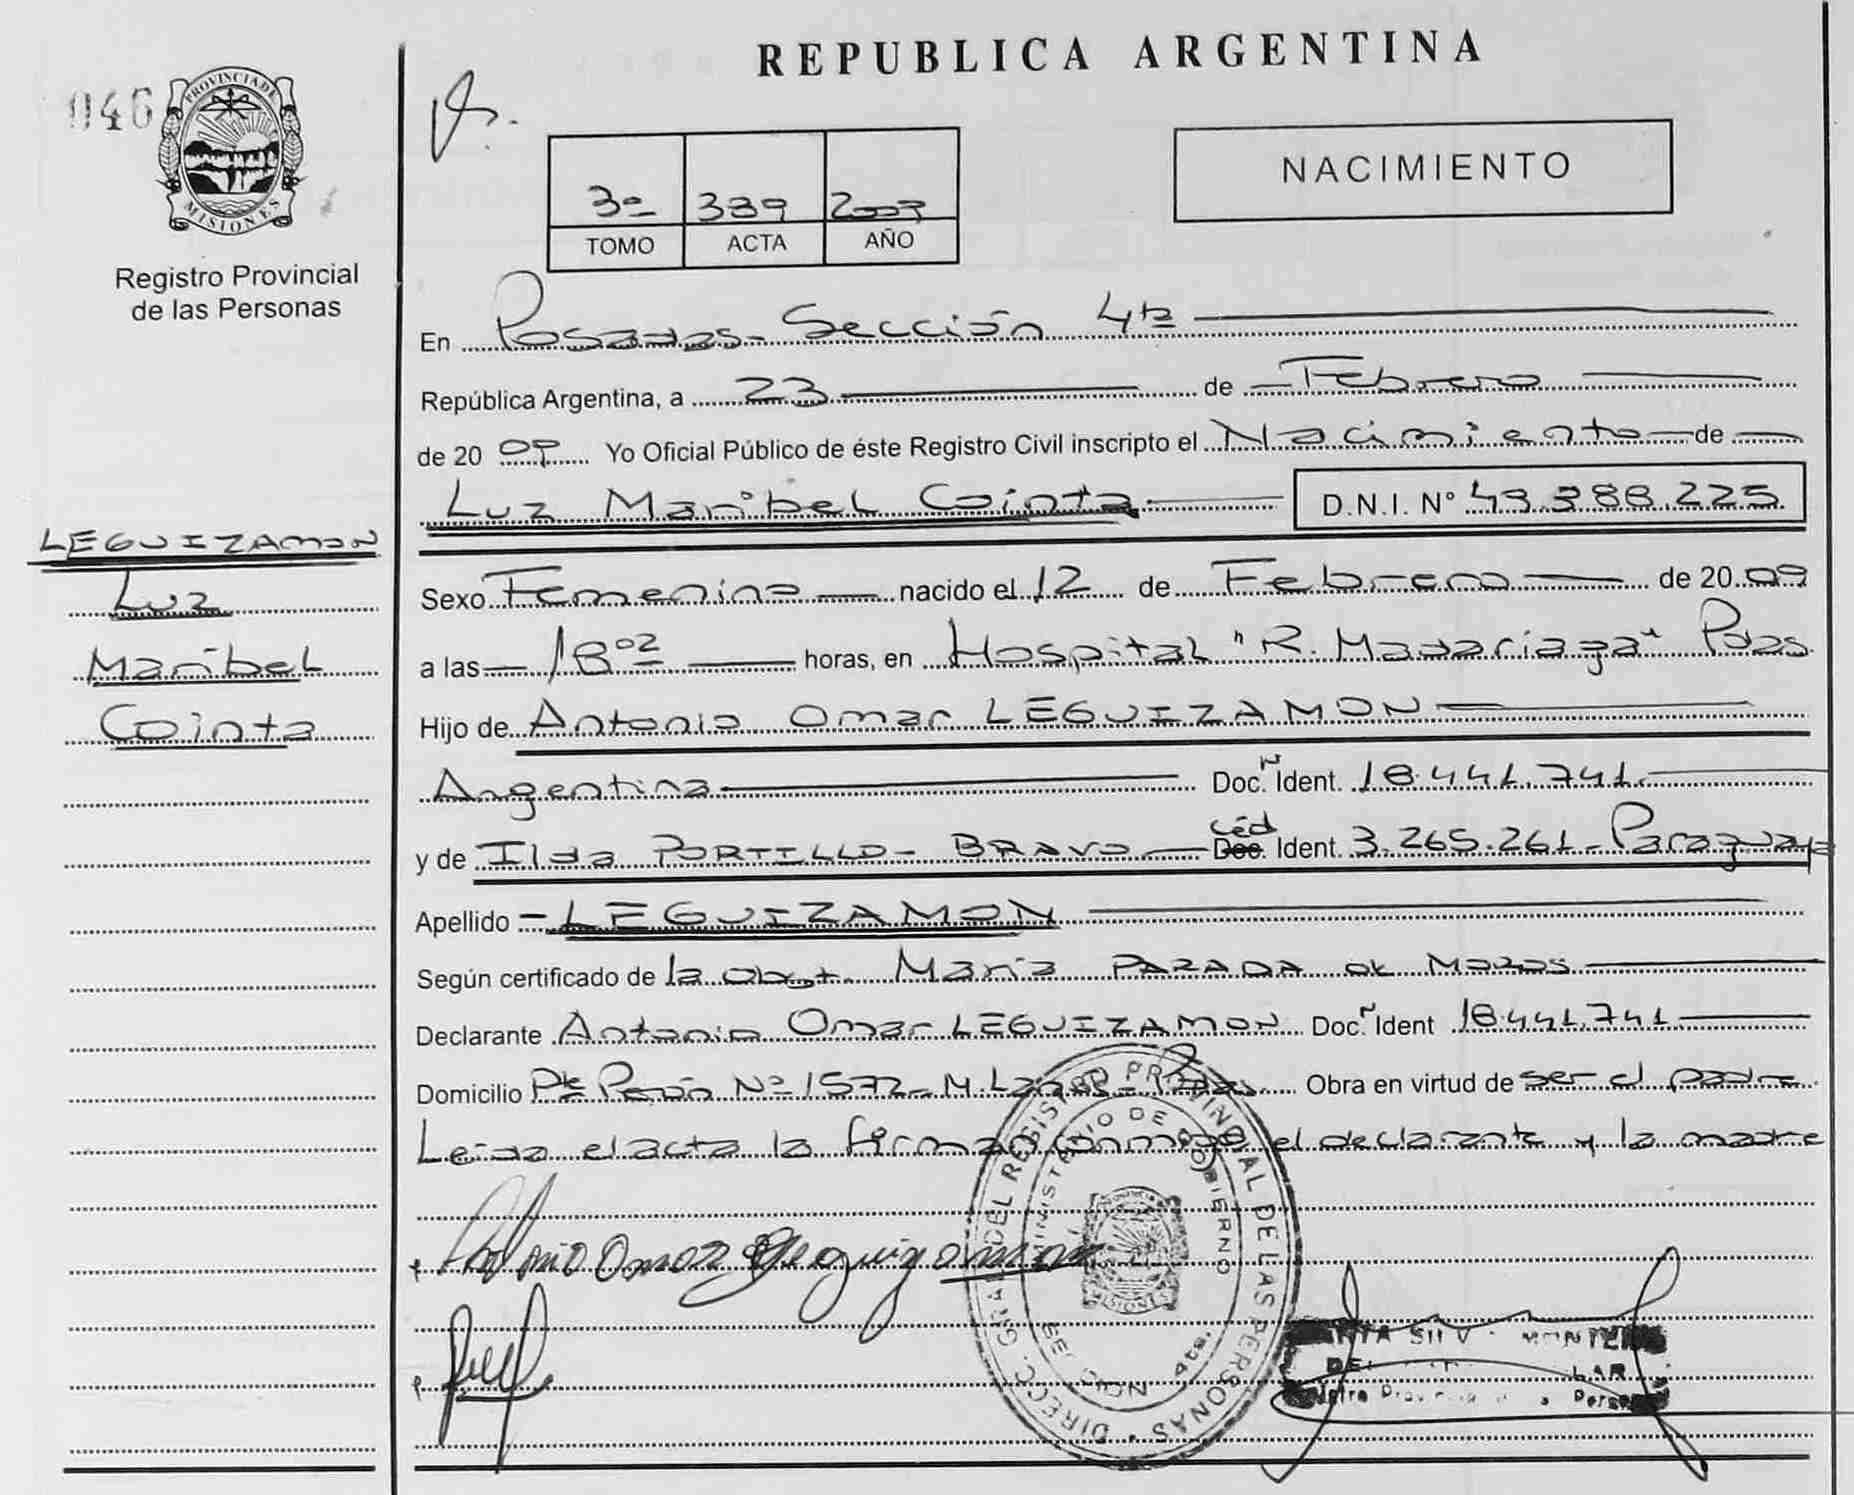 REPUBLICA ARGENTINA
046
PROVINCIA DE
MISIONES
Registro Provincial
de las Personas
3º 339 2009
TOMO ACTA AÑO
NACIMIENTO
En Posadas - Sección 4ta
República Argentina, a 23 de Febrero
de 2009 Yo Oficial Público de éste Registro Civil inscripto el Nacimiento de
Luz Maribel Cointa D.N.I. Nº 49.388.225
LEGUIZAMON
Luz
Maribel
Cointa
Sexo Femenino nacido el 12 de Febrero de 2009
a las 18⁰² horas, en Hospital "R. Madariaga" Pdas.
Hijo de Antonio Omar LEGUIZAMON
Argentina Doc. Nº Ident. 18.441.741.
y de Ilda PORTILLO - BRAVO Céd Doc. Ident. 3.265.261 - Paraguaya
Apellido - LEGUIZAMON
Según certificado de la obst. María PARADA de
Declarante Antonio Omar LEGUIZAMON Doc. Nº Ident 18.441.741
Domicilio Pte Perón Nº 1572 - M. Obra en virtud de ser el padre
Leída el acta la firman conmigo el declarante y la madre
Antonio Omar Leguizamon
DIRECC. GRAL. DEL REGISTRO PROVINCIAL DE LAS PERSONAS
MINISTERIO DE GOBIERNO
SECCION 4ta.
MISIONES